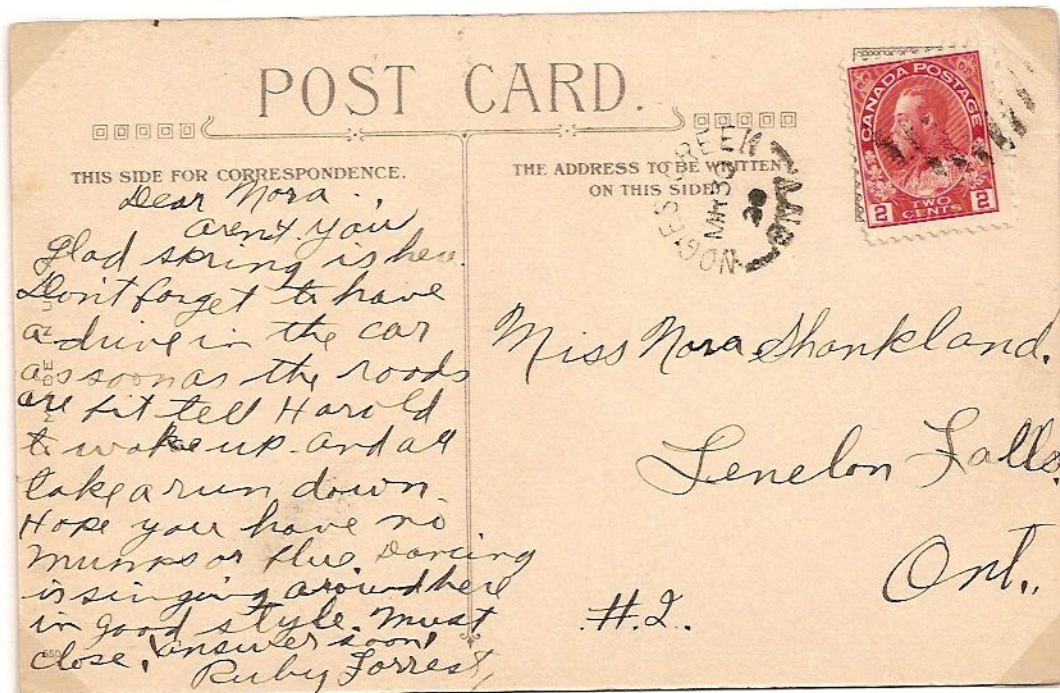 POST CARD.
THIS SIDE FOR CORRESPONDENCE.
Dear Nora.,
arent you
glad spring is here.
Don't forget to have
a drive in the car
as soon as the roads
are fit tell Harold
to wake up and all
take a run down.
Hope you have no
mumps or flue. Dancing
is singing around here
in good style. Must
close. answer soon
Ruby Forrest,
550
THE ADDRESS TO BE WRITTEN
ON THIS SIDE.
CANADA POSTAGE
2 TWO CENTS 2
ONT
20
Miss Nora Shankland.
Fenelon Falls.
Ont.,
#2.